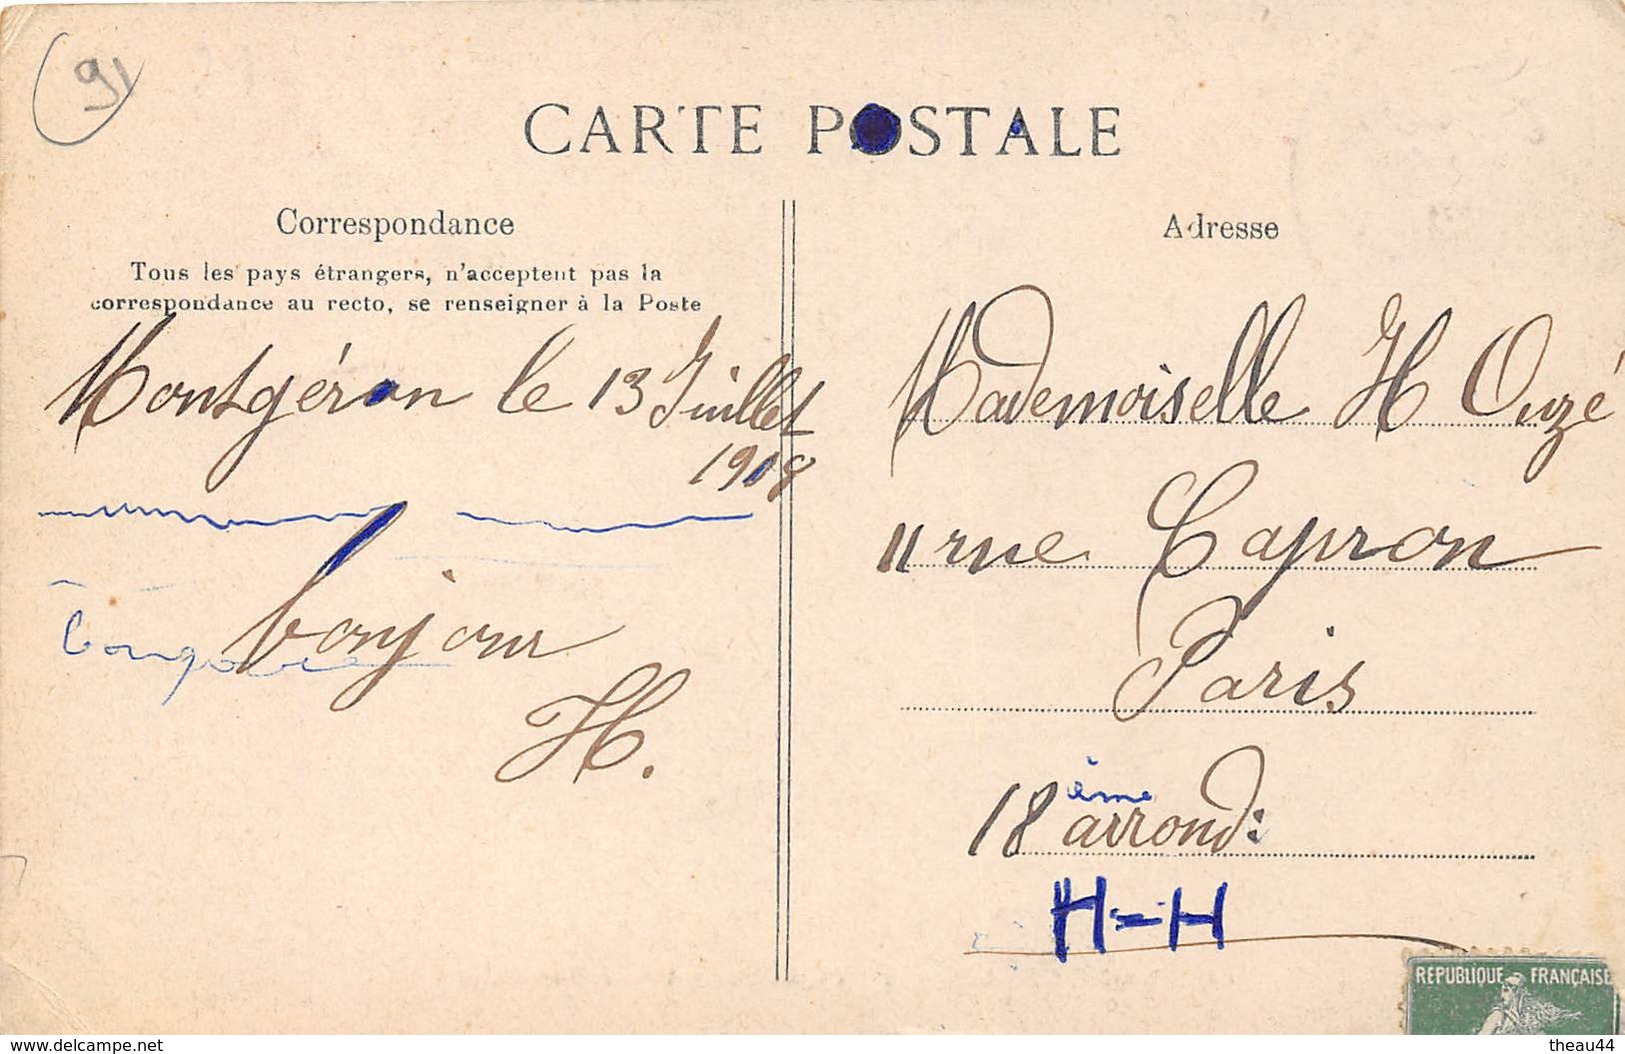 91
CARTE POSTALE
Correspondance
Tous les pays étrangers, n'acceptent pas la
correspondance au recto, se renseigner à la Poste
Montgéron le 13 Juillet
1908
bonjour
H.
Adresse
Mademoiselle H Ouzé
11 rue Capron
Paris
18 ème arrond:
H=H
REPUBLIQUE FRANÇAISE
www.delcampe.net
theau44